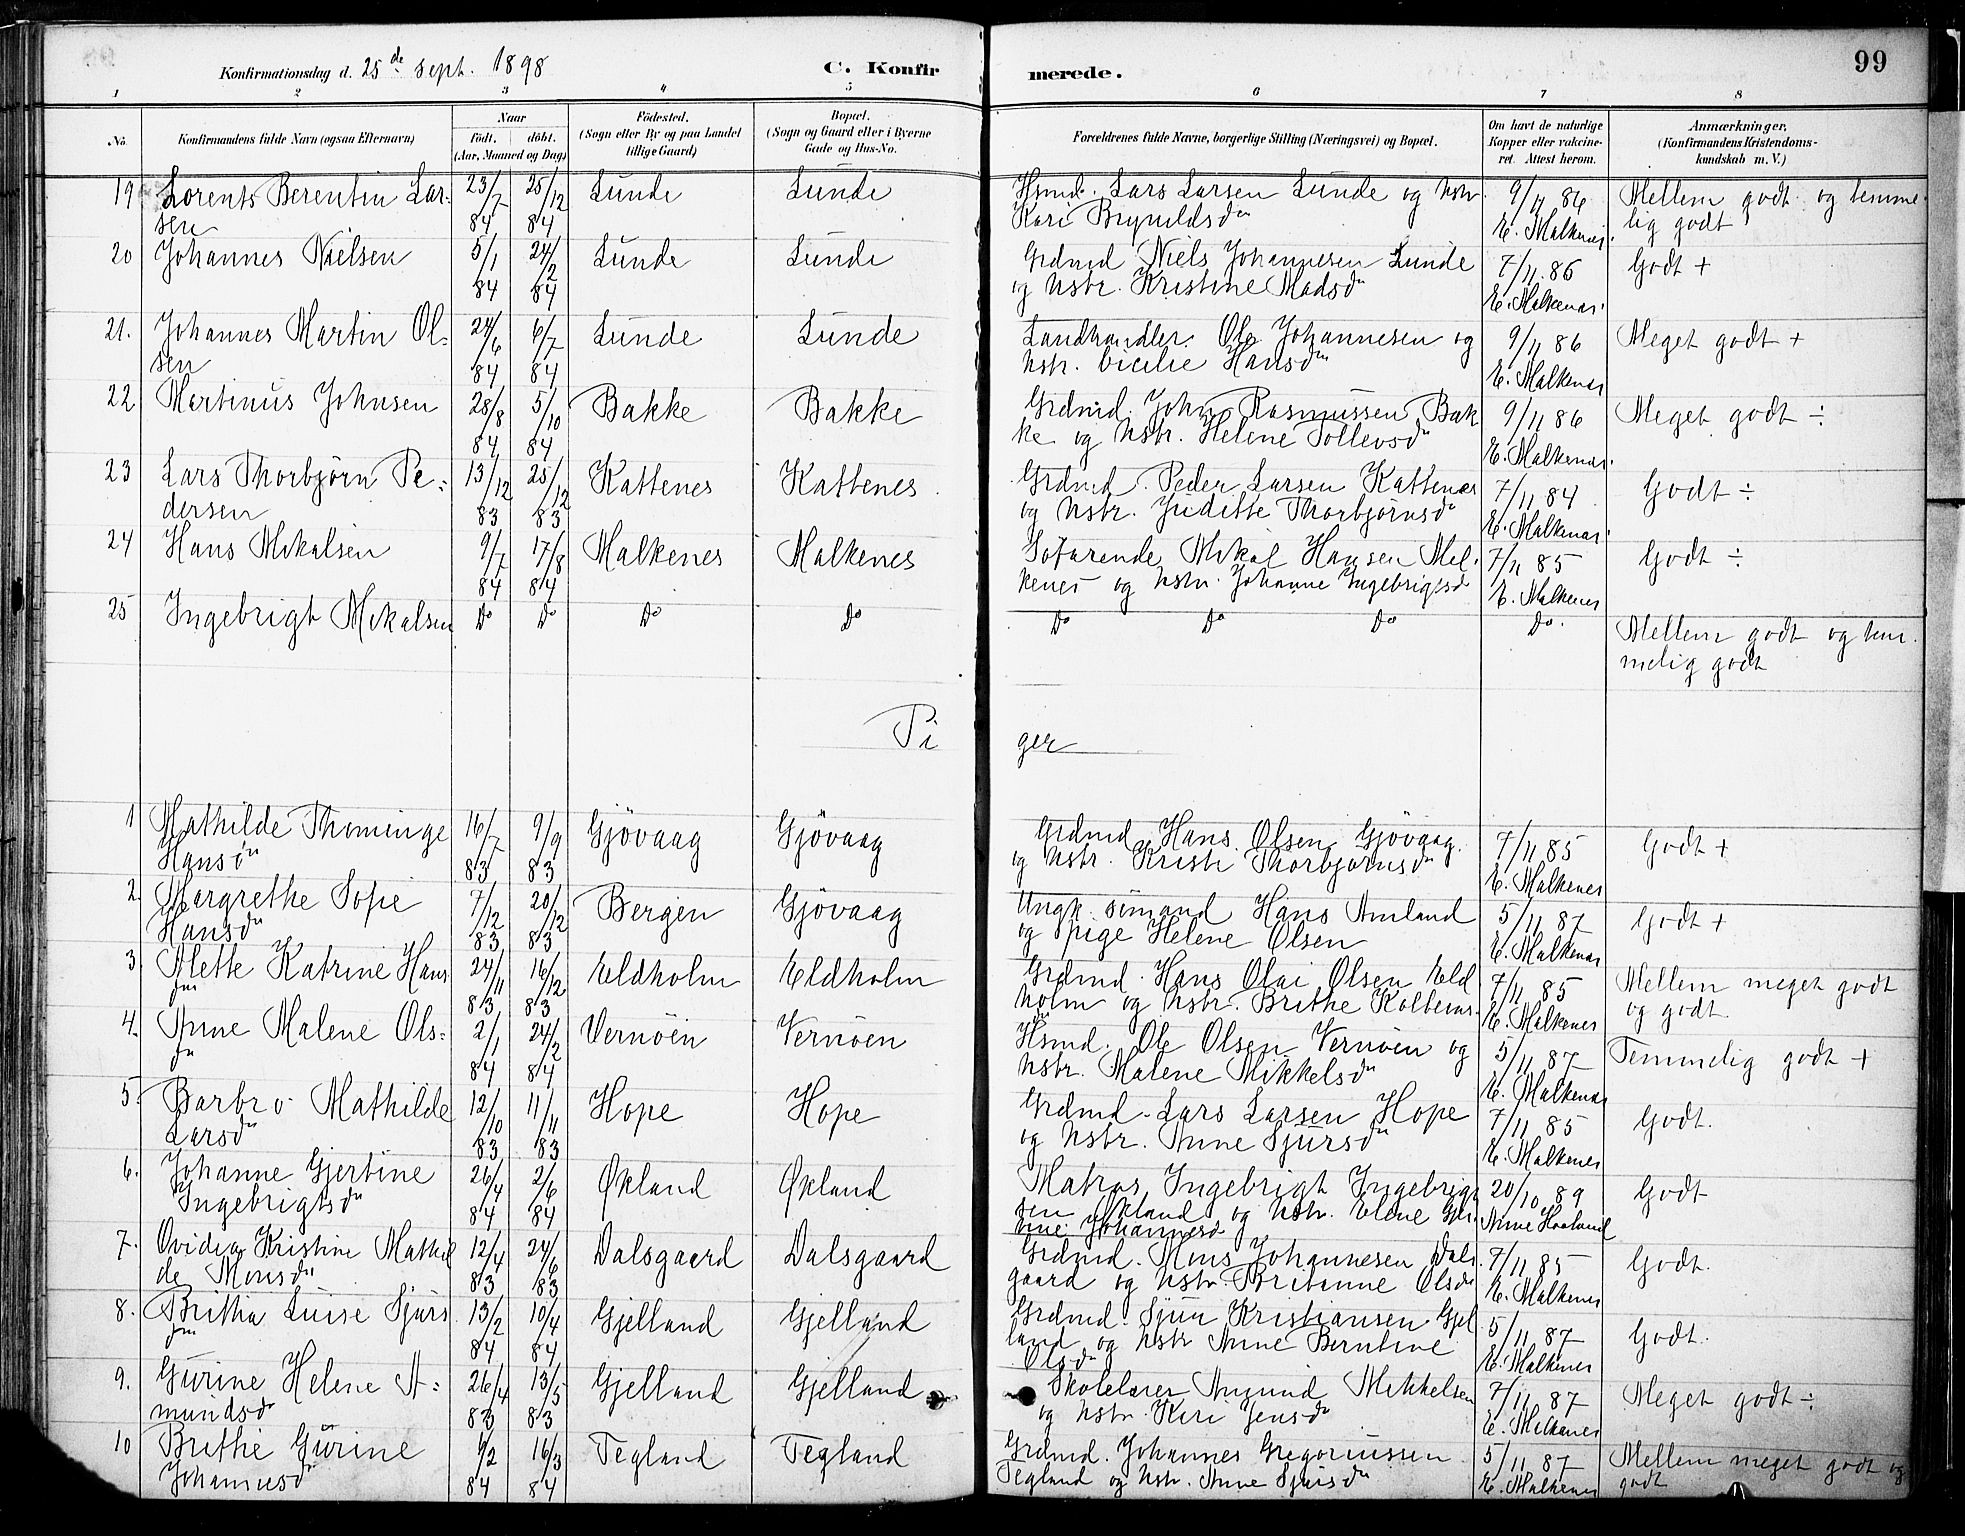 Konfirmationsdag d. 25de sept. 1898 C. Konfirmerede. 99
1 2 3 4 5 6 7 8
No. Konfirmandens fulde Navn (ogsaa Efternavn) Naar født. døbt. (Aar, Maaned og Dag) Fødested. (Sogn eller By og paa Landet tillige Gaard) Bopæl. (Sogn og Gaard eller i Byerne Gade og Hus-No. Forældrenes fulde Navne, borgerlige Stilling (Næringsvei) og Bopæl. Om havt de naturlige Kopper eller vaccineret. Attest herom. Anmærkninger. (Konfirmandens Kristendomskundskab m. V.)
19 Lorents Berentin Larsen 23/7 84 25/12 84 Lunde Lunde Hsmd. Lars Larsen Lunde og hstr. Kari Brynildsdr 9/11 86 E. Malkenes. Mellem godt og temmelig godt
20 Johannes Nielsen 5/1 84 24/2 84 Lunde Lunde Grdmd Niels Johannesen Lunde og hstr. Kristine Madsdr 7/11 86 E. Malkenes. Godt +
21. Johannes Martin Olsen 24/6 84 6/7 84 Lunde Lunde Landhandler Ole Johannesen og hstr. Cicilie Hansdr 9/11 86 E. Malkenes Meget godt +
22 Martinus Johnsen 28/8 84 5/10 84 Bakke Bakke Grdmd. John Rasmussen Bakke og hstr. Helene Tollevsdr 9/11 86 E. Malkenes. Meget godt ÷
23 Lars Thorbjørn Pedersen 13/12 83 25/12 83 Kattenes Kattenes Grdmd. Peder Larsen Kattenes og hstr. Juditte Thorbjørnsdr 7/11 84 E. Malkenes. Godt ÷
24 Hans Mikalsen 9/7 84 17/8 84 Malkenes Malkenes Søfarende Mikal Hansen Malkenes og hstr. Johanne Ingebrigtsdr 7/11 85 E. Malkenes Godt ÷
25 Ingebrigt Mikalsen Do Do Do Do Do Do Do Do. Mellem godt og temmelig godt
Piger
1 Mathilde Thominge Hansdr 16/7 83 9/9 83 Gjøvaag Gjøvaag Grdmd. Hans Olsen Gjøvaag. og hstr. Kristi Thorbjørnsdr 7/11 85 E. Malkenes Godt +
2. Margrethe Sofie Hansdr 7/12 83 20/12 83 Bergen Gjøvaag Ungk. sømand Hans Amland og pige Helene Olsen 5/11 87 E. Malkenes Godt +
3. Mette Katrine Hansdr 24/11 83 16/12 83 Eldholm Eldholm Grdmd. Hans Olai Olsen Eldholm og hstr. Brithe Kolbensdr 7/11 85 E. Malkenes Mellem meget godt og godt
4. Anne Malene Olsdr 2/1 84 24/2 84 Vernøen Vernøen Hsmd. Ole Olsen Vernøen og hstr. Malene Mikkelsdr 5/11 87 E. Malkenes Temmelig godt +
5. Barbro Mathilde Larsdr 12/10 83 11/11 83 Hope Hope Grdmd. Lars Larsen Hope og hstr. Anne Sjursdr 7/11 85 E. Malkenes Godt.
6. Johanne Gjertine Ingebrigtsdr 26/4 84 2/6 84 Økland Økland Matros Ingebrigt Ingebrigtsen Økland og hstr. Elene Johannesdr 20/10 89 Anne Haaland Godt
7. Ovidia Kristine Mathilde Monsdr 12/4 83 24/6 83 Dalsgaard Dalsgaard Grdmd. Mons Johannesen Dalsgaard og hstr Britanne Olsdr 7/11 85 E. Malkenes Godt.
8. Brithe Luise Sjursdr 13/2 84 10/4 84 Gjelland Gjelland Grdmd. Sjur Kristiansen Gjelland og hstr Anne Berntine Olsdr 5/11 87 E. Malkenes Godt.
9. Gurine Helene Amundsdr 26/4 83 13/5 83 Gjelland Gjelland Skolelærer Amund Mikkelsen og hstr. Kari Jensdr 7/11 87 E. Malkenes Meget godt ÷
10 Brithe Gurine Johannesdr 84 16/3 84 Tegland Tegland Grdmd. Johannes Gregoriussen Tegland og hstr. Anne Sjursdr 5/11 87 E. Malkenes Mellem meget godt og godt